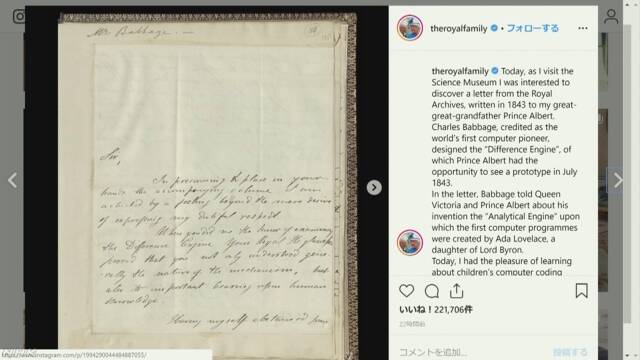 Mr Babbage. —
Sir,
In presuming to place in your
hands the accompanying volume I am
actuated by a feeling beyond the mere desire
of expressing my dutiful respect.
When you did me the honor of examining
the Difference Engine Your Royal Highness
proved that you not only understood gene-
rally the nature of the mechanism, but
also its important bearing upon human
knowledge.
Having myself obtained from
theroyalfamily • フォローする
theroyalfamily Today, as I visit the
Science Museum I was interested to
discover a letter from the Royal
Archives, written in 1843 to my great-
great-grandfather Prince Albert.
Charles Babbage, credited as the
world's first computer pioneer,
designed the "Difference Engine", of
which Prince Albert had the
opportunity to see a prototype in July
1843.
In the letter, Babbage told Queen
Victoria and Prince Albert about his
invention the "Analytical Engine" upon
which the first computer programmes
were created by Ada Lovelace, a
daughter of Lord Byron.
Today, I had the pleasure of learning
about children's computer coding
いいね！221,706件
22時間前
コメントを追加...
投稿する
https://www.instagram.com/p/1994290044484887055/